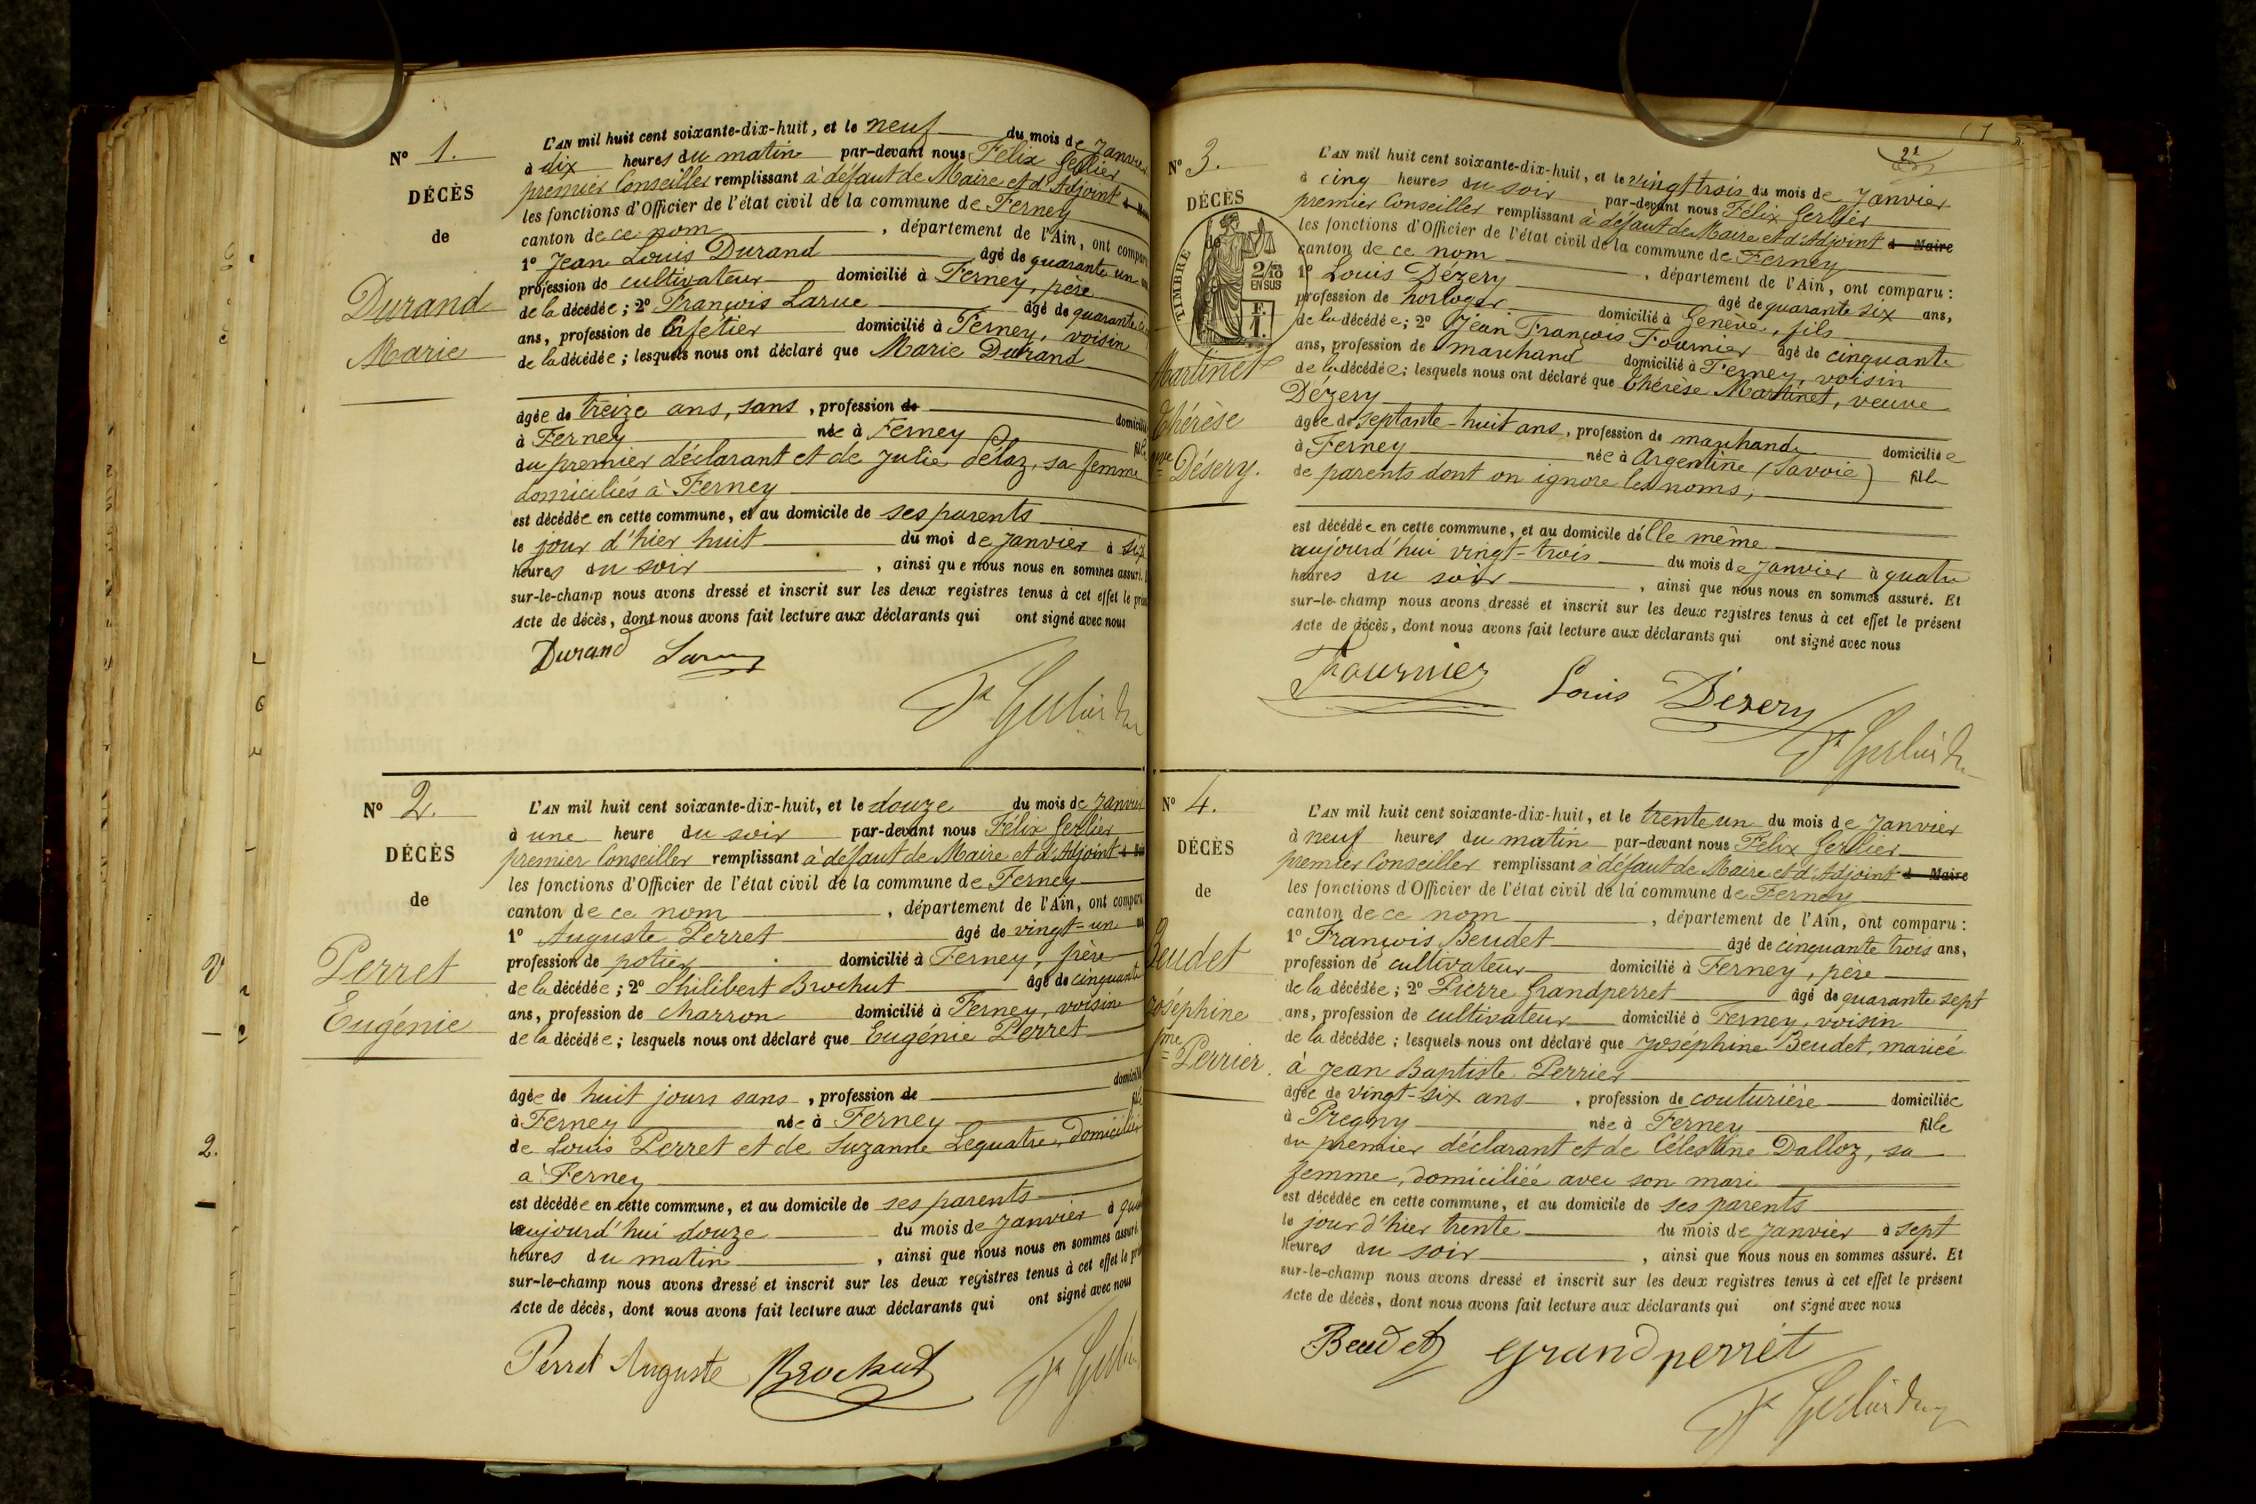 N° 1.
DÉCÈS
de
Durand
Marie
L'AN mil huit cent soixante-dix-huit, et le neuf du mois de Janvier
à dix heures du matin par-devant nous Félix Gerlier
premier Conseiller remplissant à défaut de Maire et d'Adjoint
les fonctions d'Officier de l'état civil de la commune de Ferney
canton de ce nom, département de l'Ain, ont comparu
1° Jean Louis Durand âgé de quarante un
profession de cultivateur domicilié à Ferney, père
de la décédée; 2° François Larue âgé de quarante
ans, profession de Cafetier domicilié à Ferney, voisin
de la décédée; lesquels nous ont déclaré que Marie Durand
âgée de treize ans, sans, profession de domicilié
à Ferney née à Ferney fille
du premier déclarant et de Julie Delaz, sa femme
domiciliés à Ferney
est décédée en cette commune, et au domicile de ses parents
le jour d'hier huit du moi de Janvier à six
heures du soir, ainsi que nous nous en sommes assuré.
sur-le-champ nous avons dressé et inscrit sur les deux registres tenus à cet effet le
Acte de décès, dont nous avons fait lecture aux déclarants qui ont signé avec nous
Durand Larue
N° 2.
DÉCÈS
de
Perret
Eugénie
L'AN mil huit cent soixante-dix-huit, et le douze du mois de Janvier
à une heure du soir par-devant nous Félix Gerlier
premier Conseiller remplissant à défaut de Maire et d'Adjoint
les fonctions d'Officier de l'état civil de la commune de Ferney
canton de ce nom, département de l'Ain, ont comparu
1° Auguste Perret âgé de vingt-un
profession de potier domicilié à Ferney, frère
de la décédée; 2° Philibert Brochut âgé de cinquante
ans, profession de charron domicilié à Ferney, voisin
de la décédée; lesquels nous ont déclaré que Eugénie Perret
âgée de huit jours sans, profession de domicilié
à Ferney née à Ferney fille
de Louis Perret et de Suzanne Lequatre, domiciliés
à Ferney
est décédée en cette commune, et au domicile de ses parents
aujourd'hui douze du mois de Janvier à
heures du matin, ainsi que nous nous en sommes assuré.
sur-le-champ nous avons dressé et inscrit sur les deux registres tenus à cet effet le
Acte de décès, dont nous avons fait lecture aux déclarants qui ont signé avec nous
Perret Auguste Brochut
21
N° 3.
DÉCÈS
de
TIMBRE
2/10
EN SUS
F.
1.
Martinet
Thérèse
vve Désery.
L'AN mil huit cent soixante-dix-huit, et le vingt trois du mois de Janvier
à cinq heures du soir par-devant nous Félix Gerlier
premier Conseiller remplissant à défaut de Maire et d'Adjoint d Maire
les fonctions d'Officier de l'état civil de la commune de Ferney
canton de ce nom, département de l'Ain, ont comparu:
1° Louis Dézery âgé de quarante six ans,
profession de horloger domicilié à Genève, fils
de la décédée; 2° Jean François Fournier âgé de cinquante
ans, profession de marchand domicilié à Ferney, voisin
de la décédée; lesquels nous ont déclaré que Thérèse Martinet, veuve
Dézery
âgée de septante-huit ans, profession de marchande domiciliée
à Ferney née à Argentine (Savoie) fille
de parents dont on ignore les noms,
est décédée en cette commune, et au domicile d'elle même
aujourd'hui vingt-trois du mois de Janvier à quatre
heures du soir, ainsi que nous nous en sommes assuré. Et
sur-le-champ nous avons dressé et inscrit sur les deux registres tenus à cet effet le présent
Acte de décès, dont nous avons fait lecture aux déclarants qui ont signé avec nous
Fournier Louis Dézery
N° 4.
DÉCÈS
de
Beudet
Joséphine
fme Perrier.
L'AN mil huit cent soixante-dix-huit, et le trente un du mois de Janvier
à neuf heures du matin par-devant nous Félix Gerlier
premier Conseiller remplissant à défaut de Maire et d'Adjoint d Maire
les fonctions d'Officier de l'état civil de la commune de Ferney
canton de ce nom, département de l'Ain, ont comparu:
1° François Beudet âgé de cinquante trois ans,
profession de cultivateur domicilié à Ferney, père
de la décédée; 2° Pierre Grandperret âgé de quarante sept
ans, profession de cultivateur domicilié à Ferney, voisin
de la décédée; lesquels nous ont déclaré que Joséphine Beudet, mariée
à Jean Baptiste Perrier
âgée de vingt-six ans, profession de couturière domiciliée
à Pregny née à Ferney fille
du premier déclarant et de Célestine Dalloz, sa
femme, domiciliée avec son mari
est décédée en cette commune, et au domicile de ses parents
le jour d'hier trente du mois de Janvier à sept
heures du soir, ainsi que nous nous en sommes assuré. Et
sur-le-champ nous avons dressé et inscrit sur les deux registres tenus à cet effet le présent
Acte de décès, dont nous avons fait lecture aux déclarants qui ont signé avec nous
Beudet Grandperret